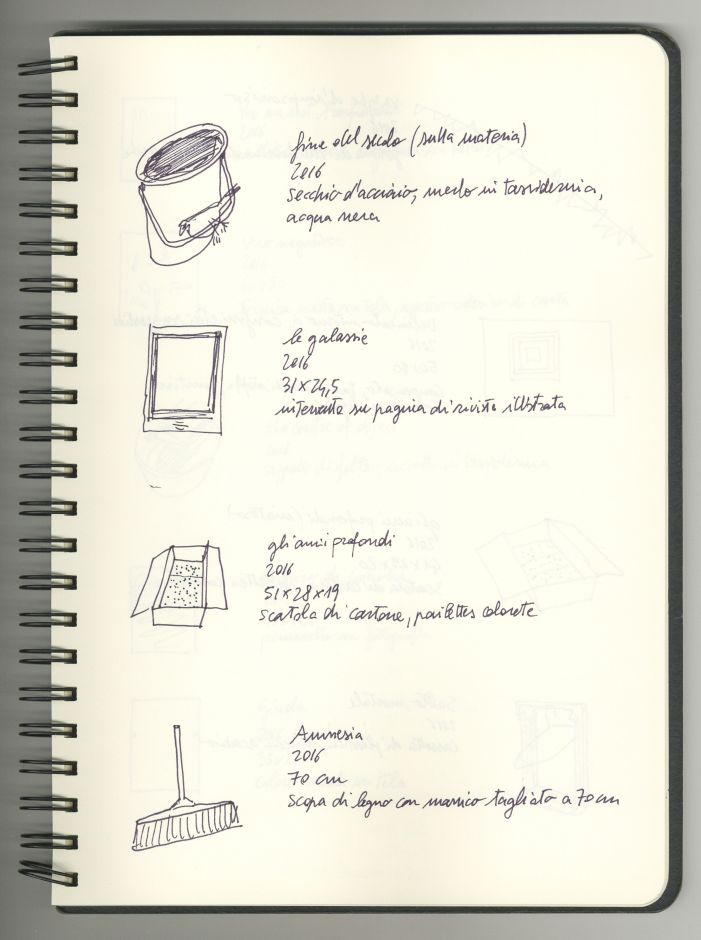 fine del secolo (sulla materia)
2016
secchio d'acciaio, merlo in tassidermia,
acqua nera
le galassie
2016
31x24,5
intervento su pagina di rivista illustrata
gli anni profondi
2016
51x28x19
scatola di cartone, paillettes colorate
Amnesia
2016
70 cm
scopa di legno con manico tagliato a 70 cm